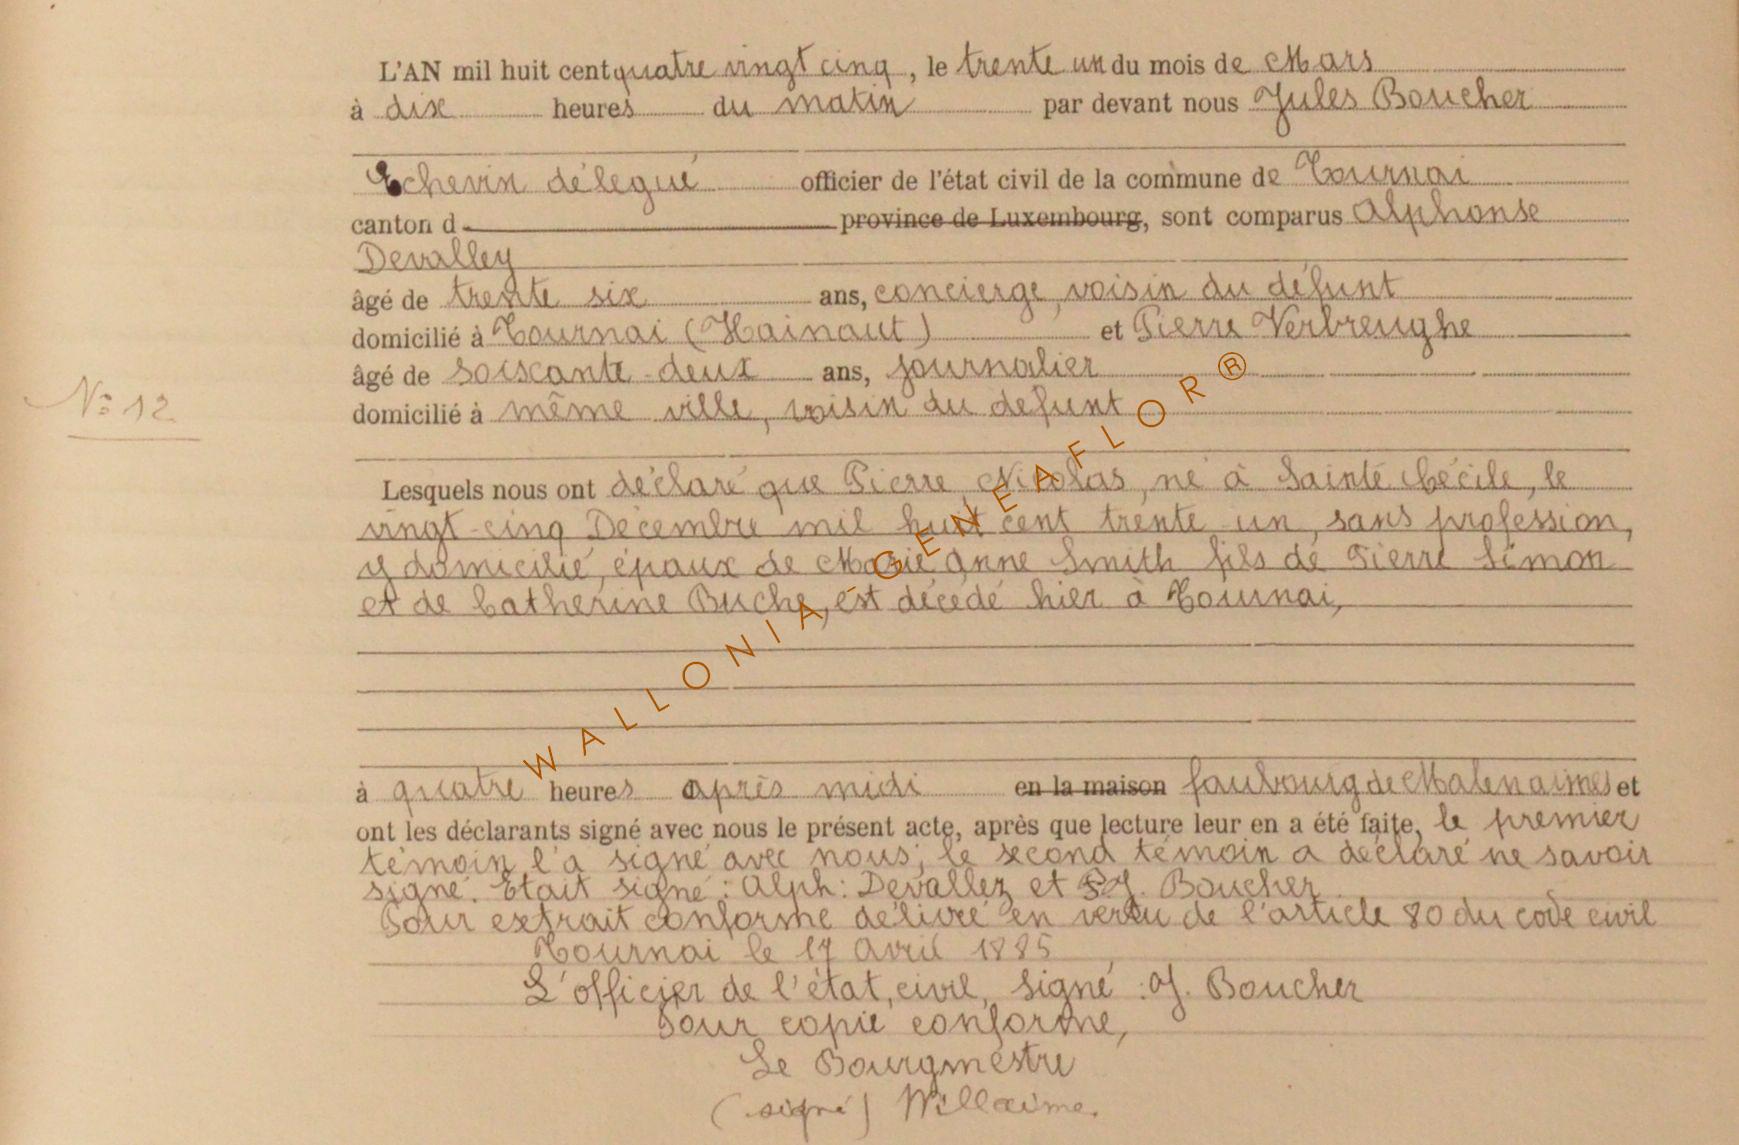 L'AN mil huit cent quatre vingt cinq, le trente un du mois de Mars
à dix heures du matin par devant nous Jules Boucher
Echevin délégué officier de l'état civil de la commune de Tournai
canton d province de Luxembourg, sont comparus Alphonse
Devalley
âgé de trente six ans, concierge, voisin du défunt
domicilié à Tournai (Hainaut) et Pierre Verbreughe
âgé de soixante-deux ans, journalier
N° 12
domicilié à même ville, voisin du defunt
Lesquels nous ont déclaré que Pierre Nicolas, né à Sainte Cécile, le
vingt-cinq Décembre mil huit cent trente-un, sans profession,
y domicilié, épaux de Marie Anne Smith fils de Pierre Simon
et de Catherine Buche, est décédé hier à Tournai,
à quatre heures après midi en la maison faubourg de et
ont les déclarants signé avec nous le présent acte, après que lecture leur en a été faite, le premier
témoin l'a signé avec nous; le second témoin a déclaré ne savoir
signé. Etait signé: Alph: Devallez et J. Boucher
Pour extrait conforme délivré en vertu de l'article 80 du code civil
Tournai le 17 Avril 1885
L'officier de l'état, civil, signé: J. Boucher
Pour copie conforme,
Le Bourgmestre
(signé) Willaime.
WALLONIA - GENEAFLOR®